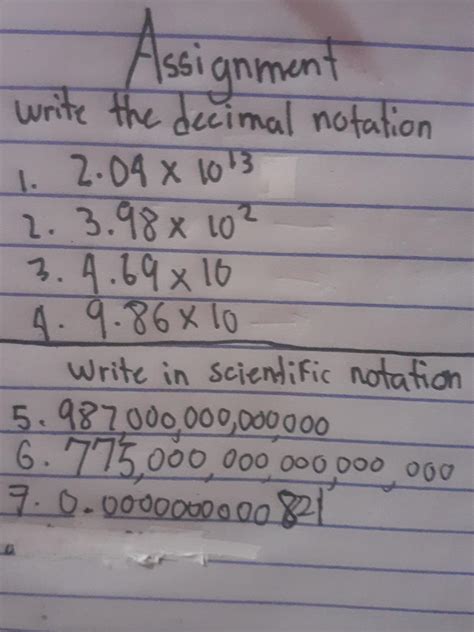 Assignment
Write the decimal notation
1. 2.04 x 10¹³
2. 3.98 x 10²
3. 4.69 x 10
4. 9.86 x 10
Write in scientific notation
5. 987,000,000,000,000
6. 775,000,000,000,000,000
7. 0.0000000000821